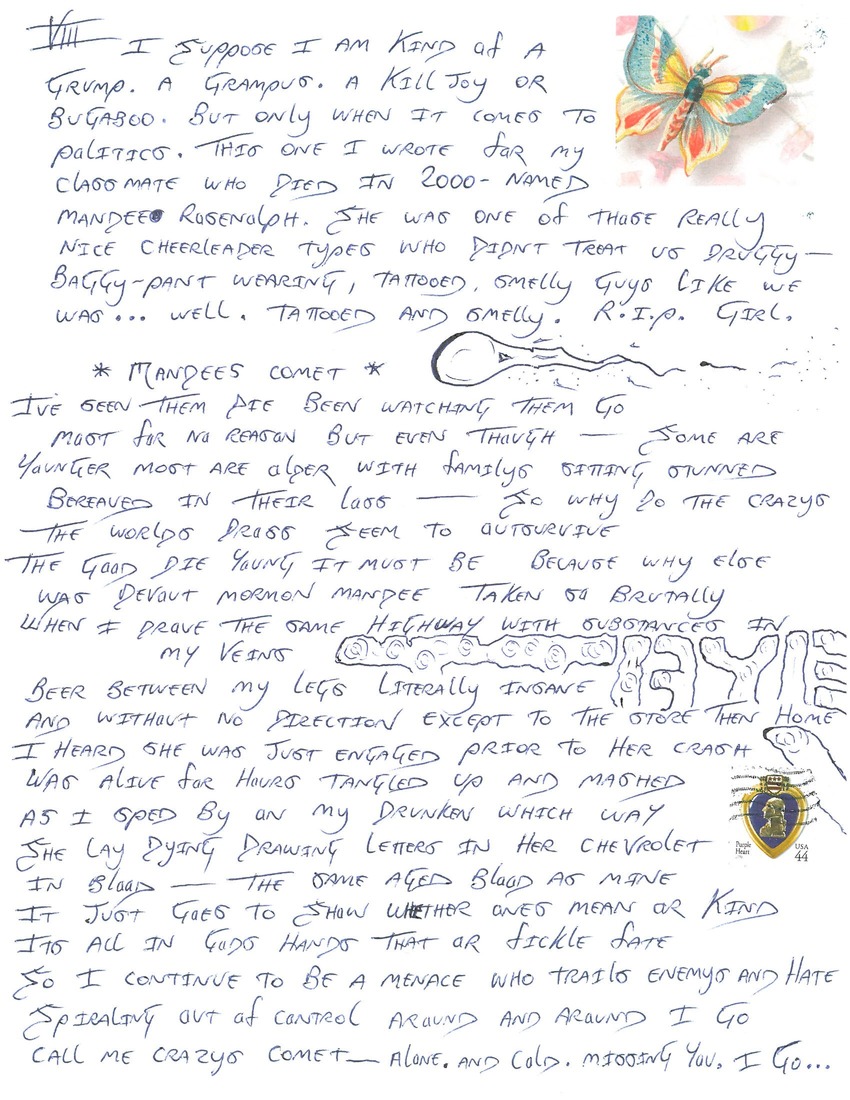 VIII I SUPPOSE I AM KIND of A
GRUMP. A GRAMPUS. A KILLJOY OR
BUGABOO. BUT ONLY WHEN IT COMES TO
POLITICS. THIS ONE I WROTE for MY
CLASSMATE WHO DIED IN 2000- NAMED
MANDEE ROSENDLPH. SHE WAS ONE of THOSE REALLY
NICE CHEERLEADER TYPES WHO DIDNT TREAT US DRUGGY—
BAGGY-PANT WEARING, TATTOOED, SMELLY GUYS LIKE WE
WAS... WELL. TATTOOED AND SMELLY. R.I.P. GIRL.
* MANDEES COMET *
IVE SEEN THEM DIE BEEN WATCHING THEM GO
MOST for NO REASON BUT EVEN THOUGH — SOME ARE
YOUNGER MOST ARE OLDER WITH familys SITTING STUNNED
BEREAVED IN THEIR LOSS — SO WHY DO THE CRAZYS
THE WORLDS DROSS SEEM TO OUTSURVIVE
THE GOOD DIE YOUNG IT MUST BE BECAUSE WHY ELSE
WAS DEVOUT MORMON MANDEE TAKEN SO BRUTALLY
WHEN I DROVE THE SAME HIGHWAY WITH SUBSTANCES IN
MY VEINS
BEER BETWEEN MY LEGS LITERALLY INSANE
AND WITHOUT NO DIRECTION EXCEPT TO THE STORE THEN HOME
I HEARD SHE WAS JUST ENGAGED PRIOR TO HER CRASH
WAS ALIVE for HOURS TANGLED UP AND MASHED
AS I SPED BY ON MY DRUNKEN WHICH WAY
Purple Heart USA 44
SHE LAY DYING DRAWING LETTERS IN HER CHEVROLET
IN BLOOD — THE SAME AGED BLOOD AS MINE
IT JUST GOES TO SHOW WHETHER ONES MEAN OR KIND
ITS ALL IN GODS HANDS THAT OR fICKLE fATE
SO I CONTINUE TO BE A MENACE WHO TRAILS ENEMYS AND HATE
SPIRALING OUT of CONTROL AROUND AND AROUND I GO
CALL ME CRAZYS COMET— ALONE. AND COLD. MISSING YOU. I GO...